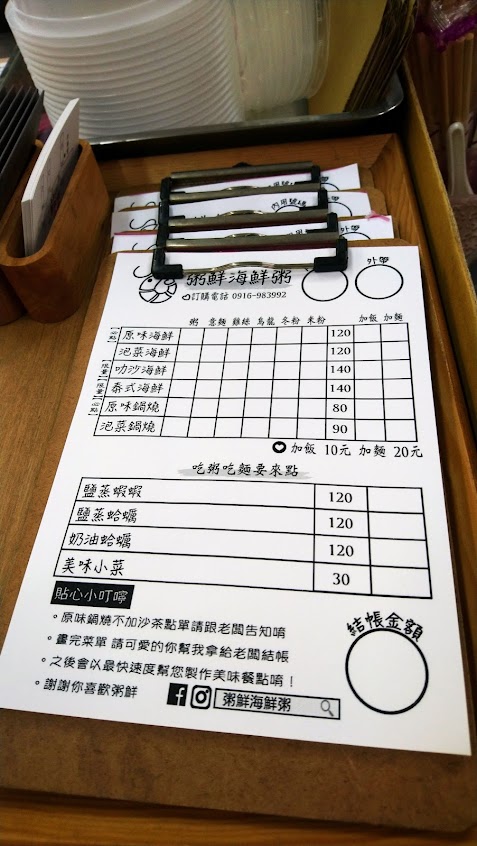 內用號碼
粥鮮海鮮粥
外帶
訂購電話 0916-983992
粥 意麵 雞絲 烏龍 冬粉 米粉 加飯 加麵
必點 原味海鮮 120
泡菜海鮮 120
限量 叻沙海鮮 140
限量 泰式海鮮 140
必點 原味鍋燒 80
泡菜鍋燒 90
加飯 10元 加麵 20元
吃粥吃麵要來點
鹽蒸蝦蝦 120
鹽蒸蛤蠣 120
奶油蛤蠣 120
美味小菜 30
貼心小叮嚀
。原味鍋燒不加沙茶點單請跟老闆告知唷
。畫完菜單 請可愛的你幫我拿給老闆結帳
。之後會以最快速度幫您製作美味餐點唷！
。謝謝你喜歡粥鮮
結帳金額
粥鮮海鮮粥